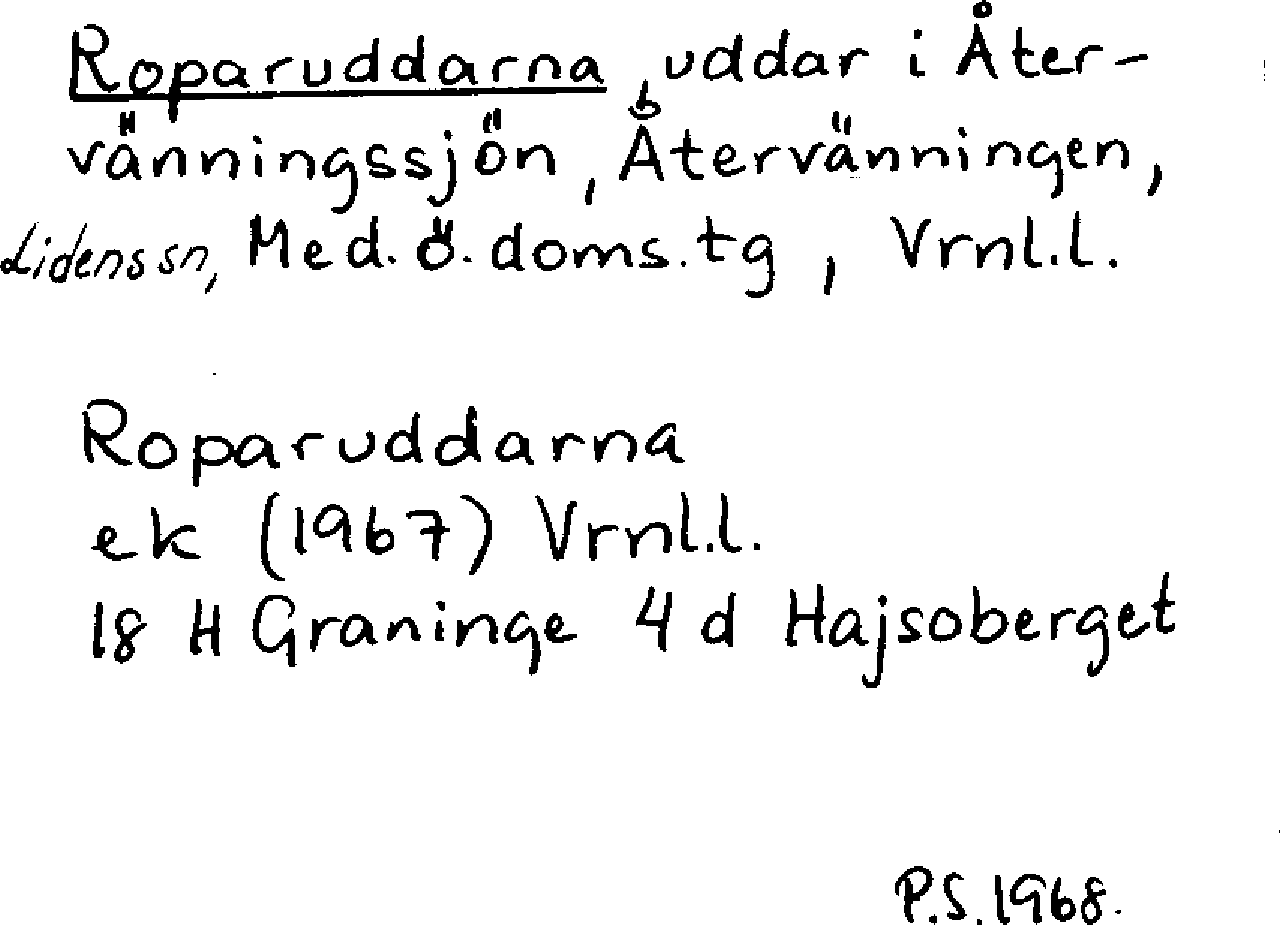 Roparuddarna, uddar i Åter-
vänningssjön, Återvänningen,
Lidens sn, Med. ö. doms. tg, Vrnl. l.
Roparuddarna
ek (1967) Vrnl. l.
18 H Graninge 4 d Hajsoberget
P.S. 1968.